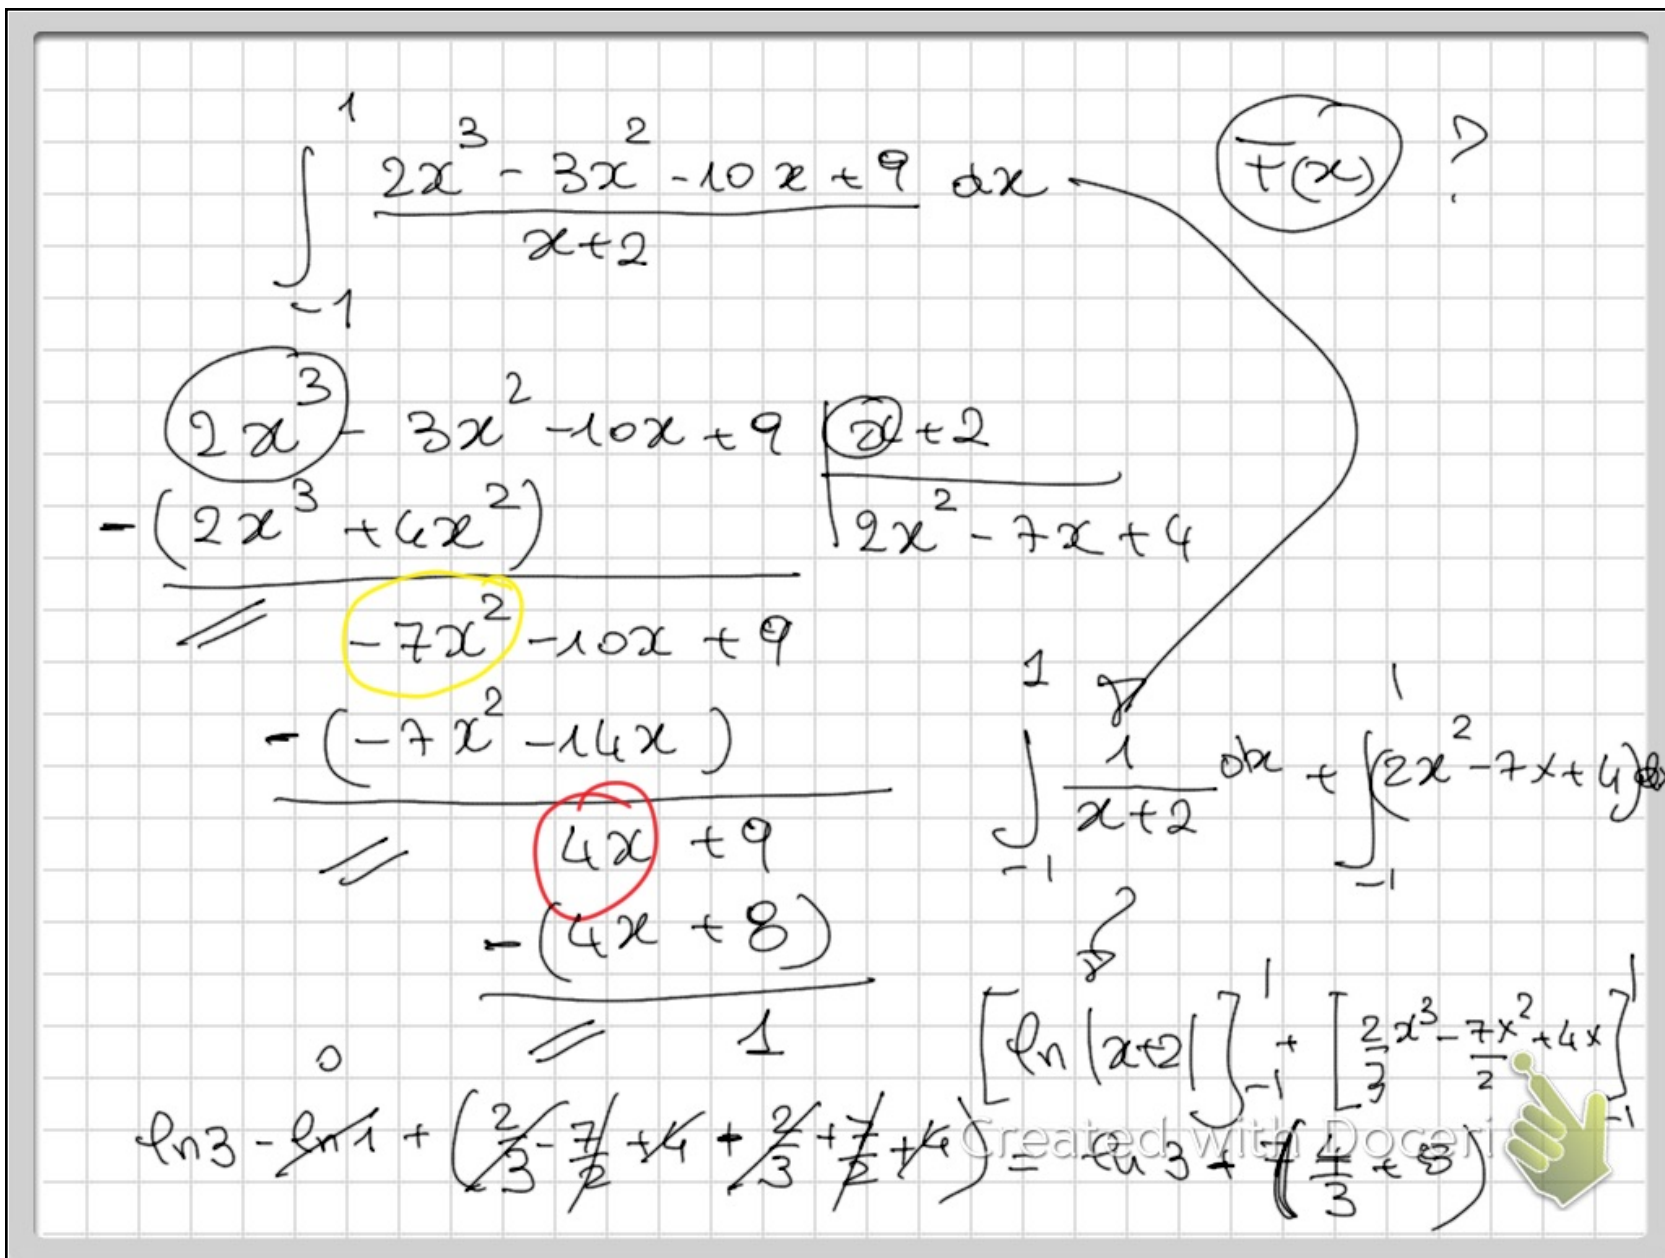 ∫_{-1}^{1} (2x³ - 3x² - 10x + 9)/(x+2) dx    F(x) ?
2x³ - 3x² - 10x + 9 | x + 2
-(2x³ + 4x²) | 2x² - 7x + 4
// -7x² - 10x + 9
-(-7x² - 14x)
// 4x + 9
-(4x + 8)
// 1
∫_{-1}^{1} 1/(x+2) dx + ∫_{-1}^{1} (2x² - 7x + 4)dx
[ln|x+2|]_{-1}^{1} + [2/3 x³ - 7x²/2 + 4x]_{-1}^{1}
0
ln3 - ln1 + (2/3 - 7/2 + 4 + 2/3 + 7/2 + 4) = ln 3 + (4/3 + 8)
Created with Doceri